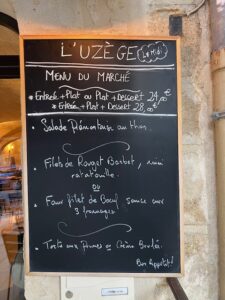 L'UZÈGE Le Midi
MENU DU MARCHÉ
* Entrée + Plat ou Plat + Dessert 24,00€
* Entrée + Plat + Dessert 28,00€
• Salade Piémontaise au thon.
• Filets de Rouget Barbet, mini
ratatouille.
ou
• Faux filet de Bœuf, sauce aux
3 fromages
• Tarte aux Prunes ou Crème Brulée.
Bon Appétit!